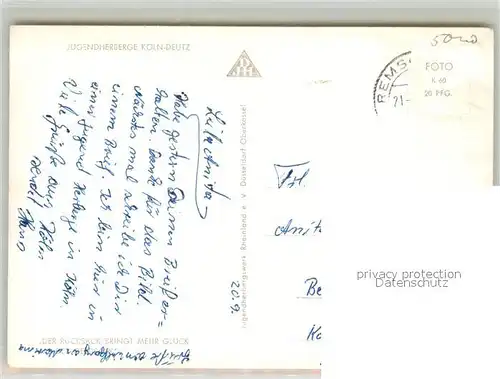 JUGENDHERBERGE KÖLN-DEUTZ
Liebe Anita
Habe gestern Deinen Brief er=
halten. Danke für das Bild.
Nächstes mal schreibe ich Dir
einen Brief. Ich bin hier in
einer Jugend Herberge in Köln.
Viele Grüße aus Köln
sendet
„DER RUCKSACK BRINGT MEHR GLÜCK
Grüße
Jugendherbergswerk Rheinland e. V. Düsseldorf-Oberkassel
20.9.
REMS
21.-
FOTO
K 60
20 PFG.
Frl.
Anit
Be
privacy protection
Datenschutz